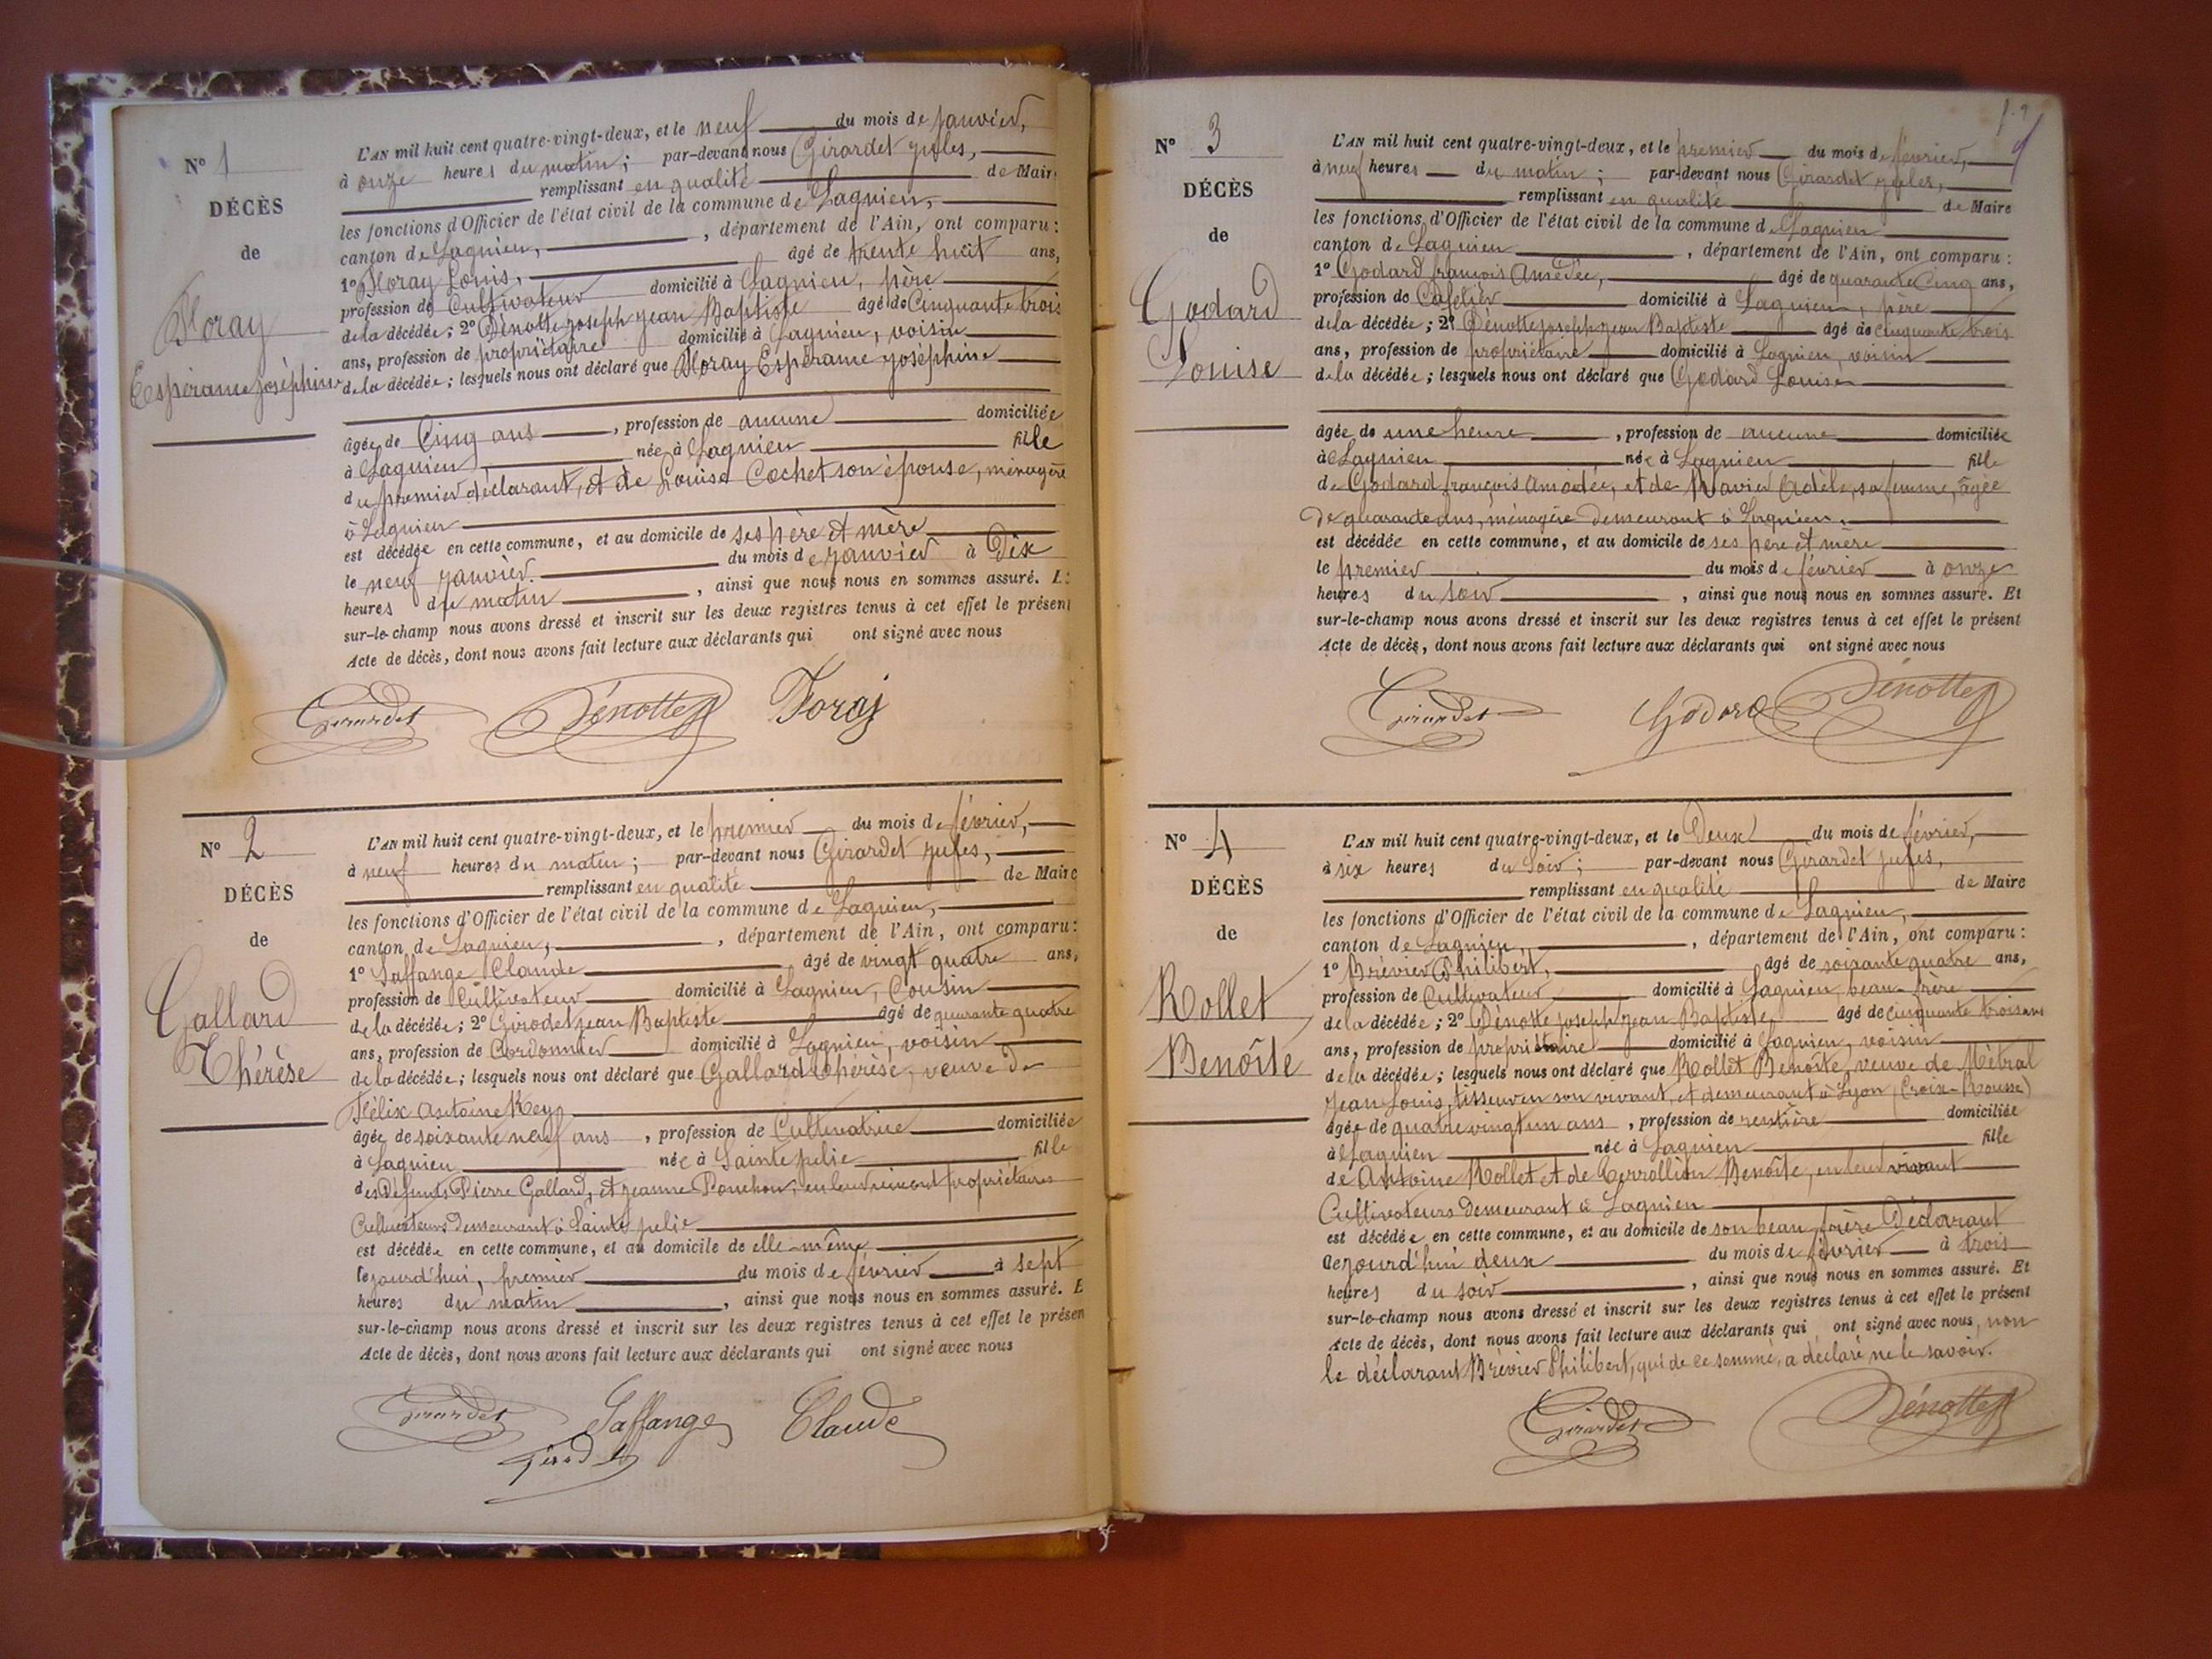 N° 1
DÉCÈS
de
Floray
Espérance Joséphine
L'AN mil huit cent quatre-vingt-deux, et le neuf du mois de janvier,
à onze heures du matin ; par-devant nous Girardet Jules,
remplissant en qualité de Maire
les fonctions d'Officier de l'état civil de la commune de Lagnieu,
canton de Lagnieu, , département de l'Ain, ont comparu :
1° Floray Louis, âgé de trente huit ans,
profession de Cultivateur domicilié à Lagnieu, père
de la décédée ; 2° Dénotte Joseph Jean Baptiste âgé de Cinquante trois
ans, profession de propriétaire domicilié à Lagnieu, voisin
de la décédée ; lesquels nous ont déclaré que Floray Espérance Joséphine
âgée de Cinq ans , profession de aucune domiciliée
à Lagnieu, née à Lagnieu fille
du premier déclarant, et de Louise Cochet son épouse, ménagère
à Lagnieu
est décédée en cette commune, et au domicile de ses père et mère
le neuf janvier. du mois de janvier à Dix
heures du matin , ainsi que nous nous en sommes assuré. E
sur-le-champ nous avons dressé et inscrit sur les deux registres tenus à cet effet le présent
Acte de décès, dont nous avons fait lecture aux déclarants qui ont signé avec nous
Girardet Dénotte Foraj
N° 2
DÉCÈS
de
Gallard
Thérèse
L'AN mil huit cent quatre-vingt-deux, et le premier du mois de février,
à neuf heures du matin ; par-devant nous Girardet Jules,
remplissant en qualité de Maire
les fonctions d'Officier de l'état civil de la commune de Lagnieu,
canton de Lagnieu, , département de l'Ain, ont comparu :
1° Laffange Claude âgé de vingt quatre ans,
profession de Cultivateur domicilié à Lagnieu, Cousin
de la décédée ; 2° Girodet Jean Baptiste âgé de quarante quatre
ans, profession de Cordonnier domicilié à Lagnieu, voisin
de la décédée ; lesquels nous ont déclaré que Gallard Thérèse, veuve de
Félix Antoine Rey
âgée de soixante neuf ans , profession de Cultivatrice domiciliée
à Lagnieu née à Sainte Julie fille
des défunts Pierre Gallard, et Jeanne Ponchon, en leur vivant propriétaires
Cultivateurs demeurant à Sainte Julie
est décédée en cette commune, et au domicile de elle-même
Cejourd'hui, premier du mois de février à sept
heures du matin , ainsi que nous nous en sommes assuré. E
sur-le-champ nous avons dressé et inscrit sur les deux registres tenus à cet effet le présen
Acte de décès, dont nous avons fait lecture aux déclarants qui ont signé avec nous
Girardet Laffange Claude
N° 3
DÉCÈS
de
Godard
Louise
L'AN mil huit cent quatre-vingt-deux, et le premier du mois de février,
à neuf heures du matin ; par-devant nous Girardet Jules,
remplissant en qualité de Maire
les fonctions d'Officier de l'état civil de la commune de Lagnieu
canton de Lagnieu , département de l'Ain, ont comparu :
1° Godard françois Amédée, âgé de quarante Cinq ans,
profession de Cafetier domicilié à Lagnieu, père
de la décédée ; 2° Dénotte Joseph Jean Baptiste âgé de cinquante trois
ans, profession de propriétaire domicilié à Lagnieu, voisin
de la décédée ; lesquels nous ont déclaré que Godard Louise
âgée de une heure , profession de aucune domiciliée
à Lagnieu née à Lagnieu fille
de Godard françois Amédée, et de Adèle, sa femme, âgée
de quarante ans, ménagère demeurant à Lagnieu.
est décédée en cette commune, et au domicile de ses père et mère
le premier du mois de février à onze
heures du soir , ainsi que nous nous en sommes assuré. Et
sur-le-champ nous avons dressé et inscrit sur les deux registres tenus à cet effet le présent
Acte de décès, dont nous avons fait lecture aux déclarants qui ont signé avec nous
Girardet Godard Dénotte
N° 4
DÉCÈS
de
Rollet
Benoîte
L'AN mil huit cent quatre-vingt-deux, et le Deux du mois de février,
à six heures du soir ; par-devant nous Girardet Jules,
remplissant en qualité de Maire
les fonctions d'Officier de l'état civil de la commune de Lagnieu,
canton de Lagnieu, , département de l'Ain, ont comparu :
1° Brévier Philibert, âgé de soixante quatre ans,
profession de Cultivateur domicilié à Lagnieu, beau-frère
de la décédée ; 2° Dénotte Joseph Jean Baptiste, âgé de cinquante trois ans
ans, profession de propriétaire domicilié à Lagnieu, voisin
de la décédée ; lesquels nous ont déclaré que Rollet Benoîte, veuve de Métral
Jean Louis, tisseur en son vivant, et demeurant à Lyon (Croix-Rousse)
âgée de quatre vingt un ans , profession de rentière domiciliée
à Lagnieu née à Lagnieu fille
de Antoine Rollet et de Benoîte, en leur vivant
Cultivateurs demeurant à Lagnieu
est décédée en cette commune, et au domicile de son beau frère Déclarant
Cejourd'hui deux du mois de février à trois
heures du soir , ainsi que nous nous en sommes assuré. Et
sur-le-champ nous avons dressé et inscrit sur les deux registres tenus à cet effet le présent
Acte de décès, dont nous avons fait lecture aux déclarants qui ont signé avec nous, non
le déclarant Brévier Philibert, qui de ce sommé, a déclaré ne le savoir.
Girardet Dénotte